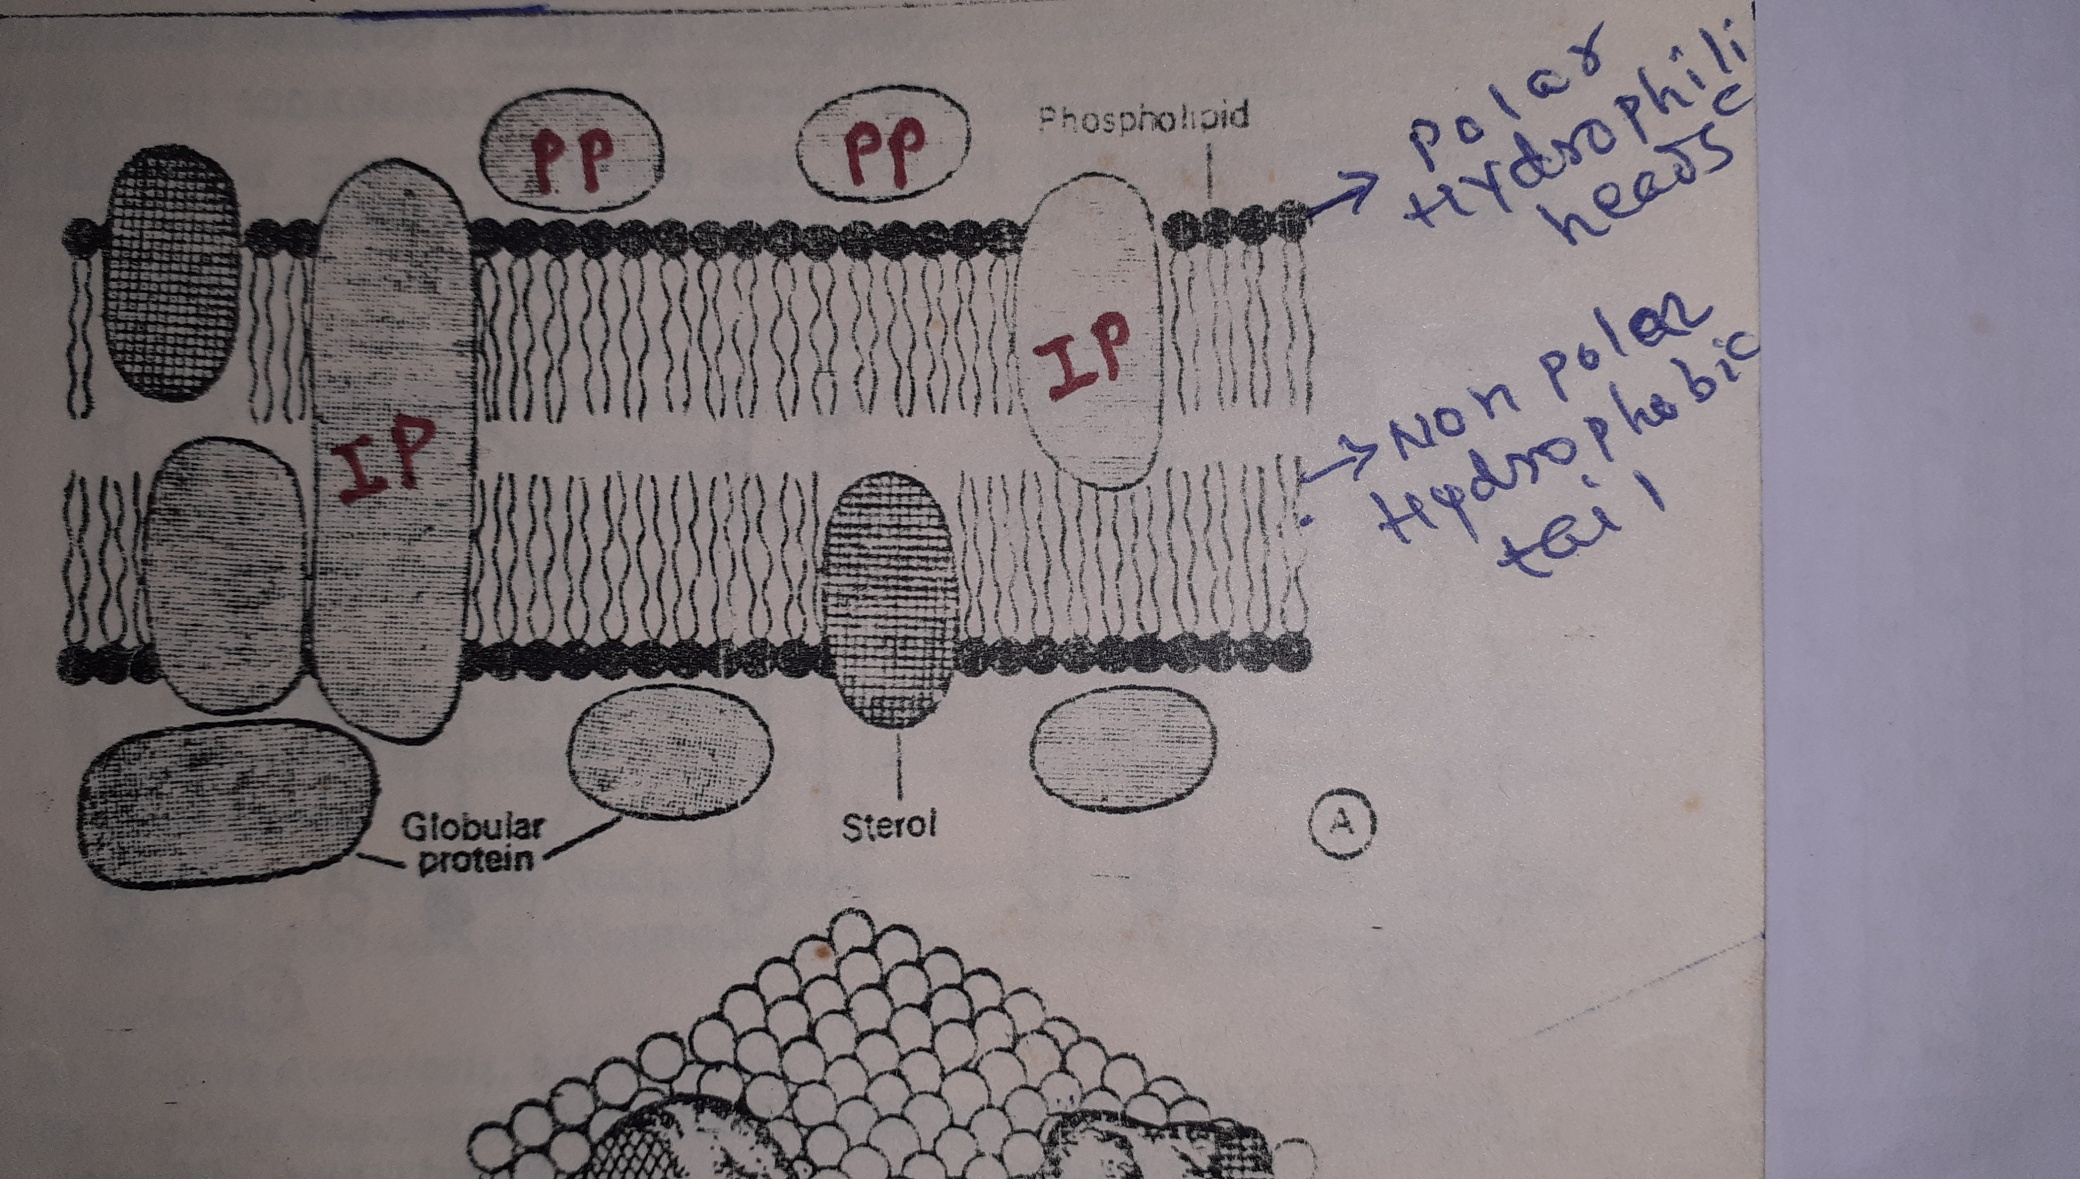 PP
PP
Phospholipid
Polar
Hydrophili
c
heads
IP
IP
Non polar
Hydrophobic
tail
Globular
protein
Sterol
A